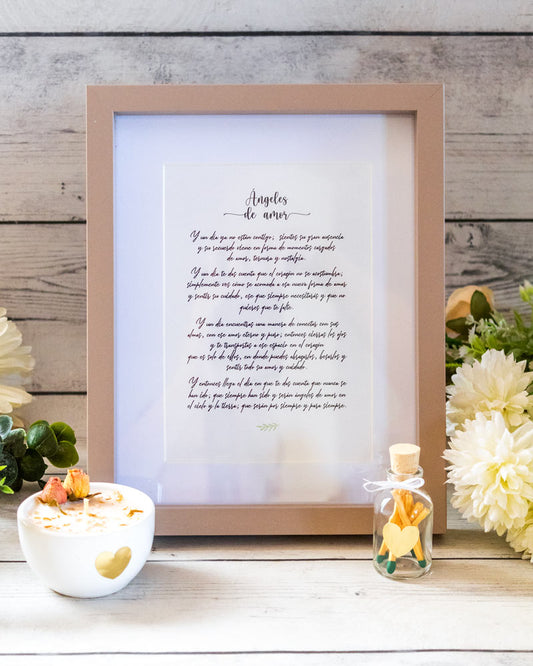 Ángeles
de amor
Y un día ya no están contigo; sientes su gran ausencia
y su recuerdo viene en forma de momentos cargados
de amor, ternura y nostalgia.
Y un día te das cuenta que el corazón no se acostumbra;
simplemente ves cómo se acomoda a esa nueva forma de amor
y sentís su cuidado, ese que siempre necesitarás y que no
quieres que te falte.
Y un día encuentras una manera de conectar con sus
almas, con ese amor eterno y puro; entonces cierras los ojos
y te transportas a ese espacio en el corazón
que es solo de ellos, en donde puedes abrazarlos, besarlos y
sentís todo su amor y cuidado.
Y entonces llega el día en que te das cuenta que nunca se
han ido; que siempre han sido y serán ángeles de amor en
el cielo y la tierra; que serán por siempre y para siempre.